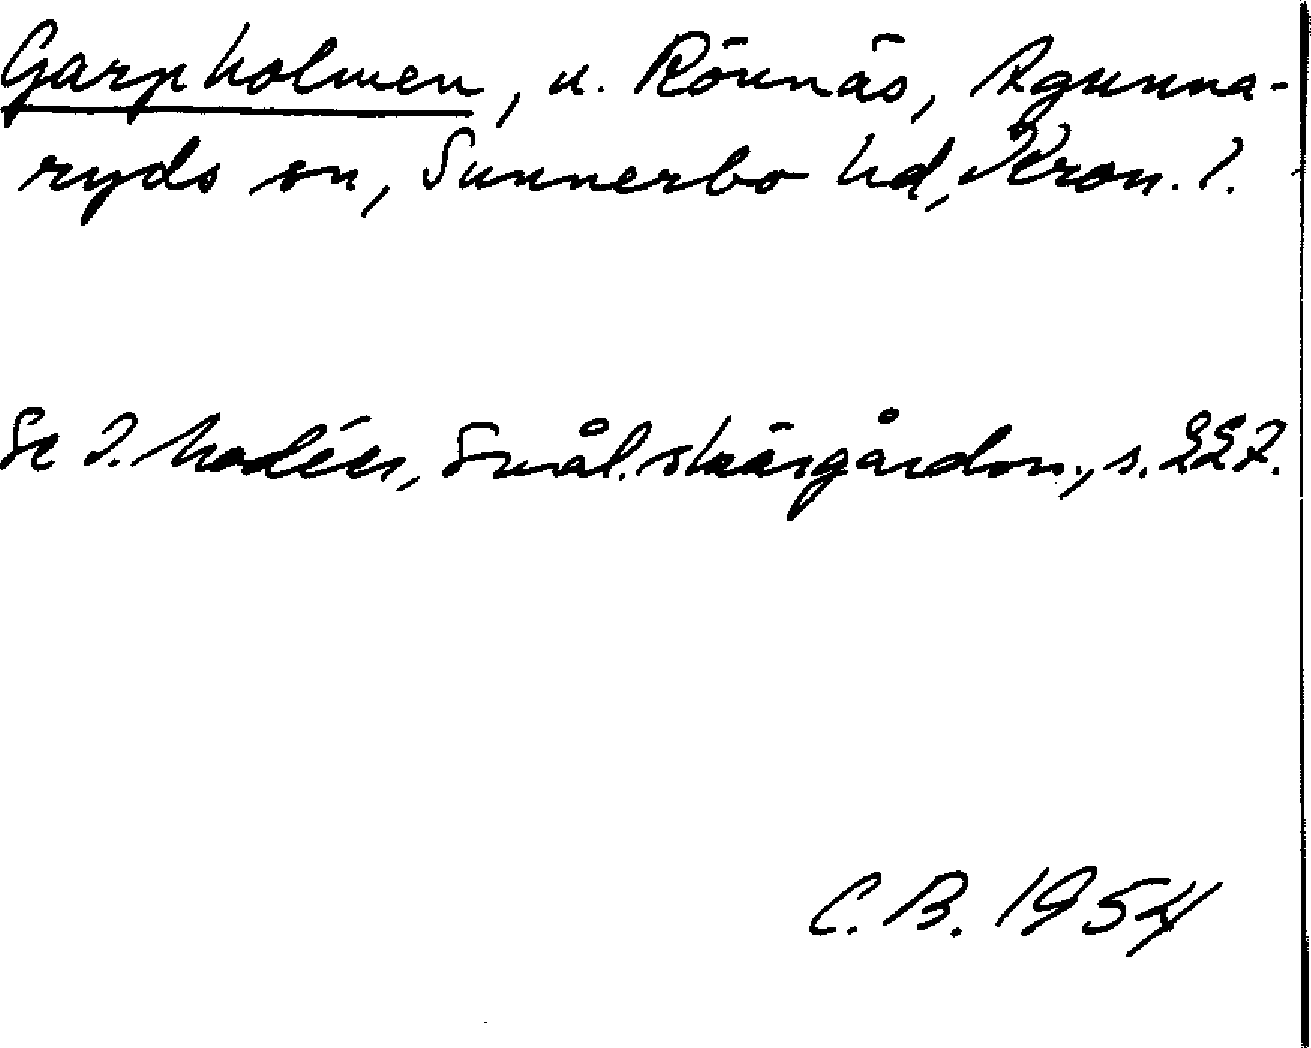 Garpholmen, u. Rönnäs, Agunna-
ryds sn, Sunnerbo hd, Kron. l.
Se I. Modéer, Smål. skärgårdsn., s. 227.
C. B. 1954